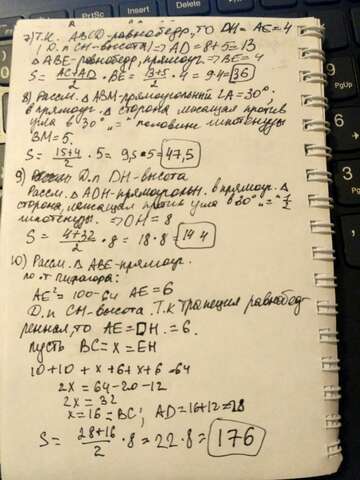 7) Т.К. ABCD-равнобедр, то DH = AE = 4
(Д.п CH-высота) => AD = 8+5=13
△ABE-равнобедр, прямоуг => BE = 4
S = BC+AD/2 · BE = 13+5/2 · 4 = 9·4=36
8) Рассм. △ABM-прямоугольный ∠A=30°,
в прямоуг. △ сторона, лежащая против
угла в 30° „=" половине гипотенузы
BM=5.
S = 15+4/2 · 5 = 9,5·5=47,5
9) Д.п DH-высота
Рассм. △ADH-прямоугольн. в прямоуг. △
сторона, лежащая против угла в 30° „=" 1/2
гипотенузы. => DH = 8
S = 4+32/2 · 8 = 18·8 = 144
10) Рассм. △ABE-прямоуг.
по т Пифагора:
AE² = 100-64 AE = 6
Д.п CH-высота. Т.К трапеция равнобед
ренная, то AE=DH.=6.
пусть BC=x=EH
10+10+x+6+x+6=64
2x = 64-20-12
2x = 32
x=16=BC; AD=16+12=28
S = 28+16/2 · 8 = 22·8 = 176